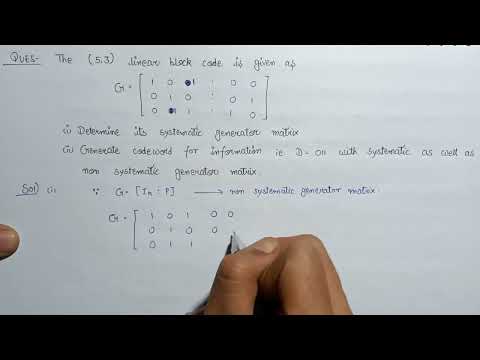 QUES- The (5,3) linear block code is given as
G = [ 1 0 1 : 0 0
0 1 0 : 0 1
0 1 1 : 1 0 ]
i) Determine its systematic generator matrix
ii) Generate codeword for information ie D = 011 with systematic as well as
non systematic generator matrix.
Sol) (i) ∵ G = [In : P] → non systematic generator matrix.
G = [ 1 0 1 0 0
0 1 0 0
0 1 1